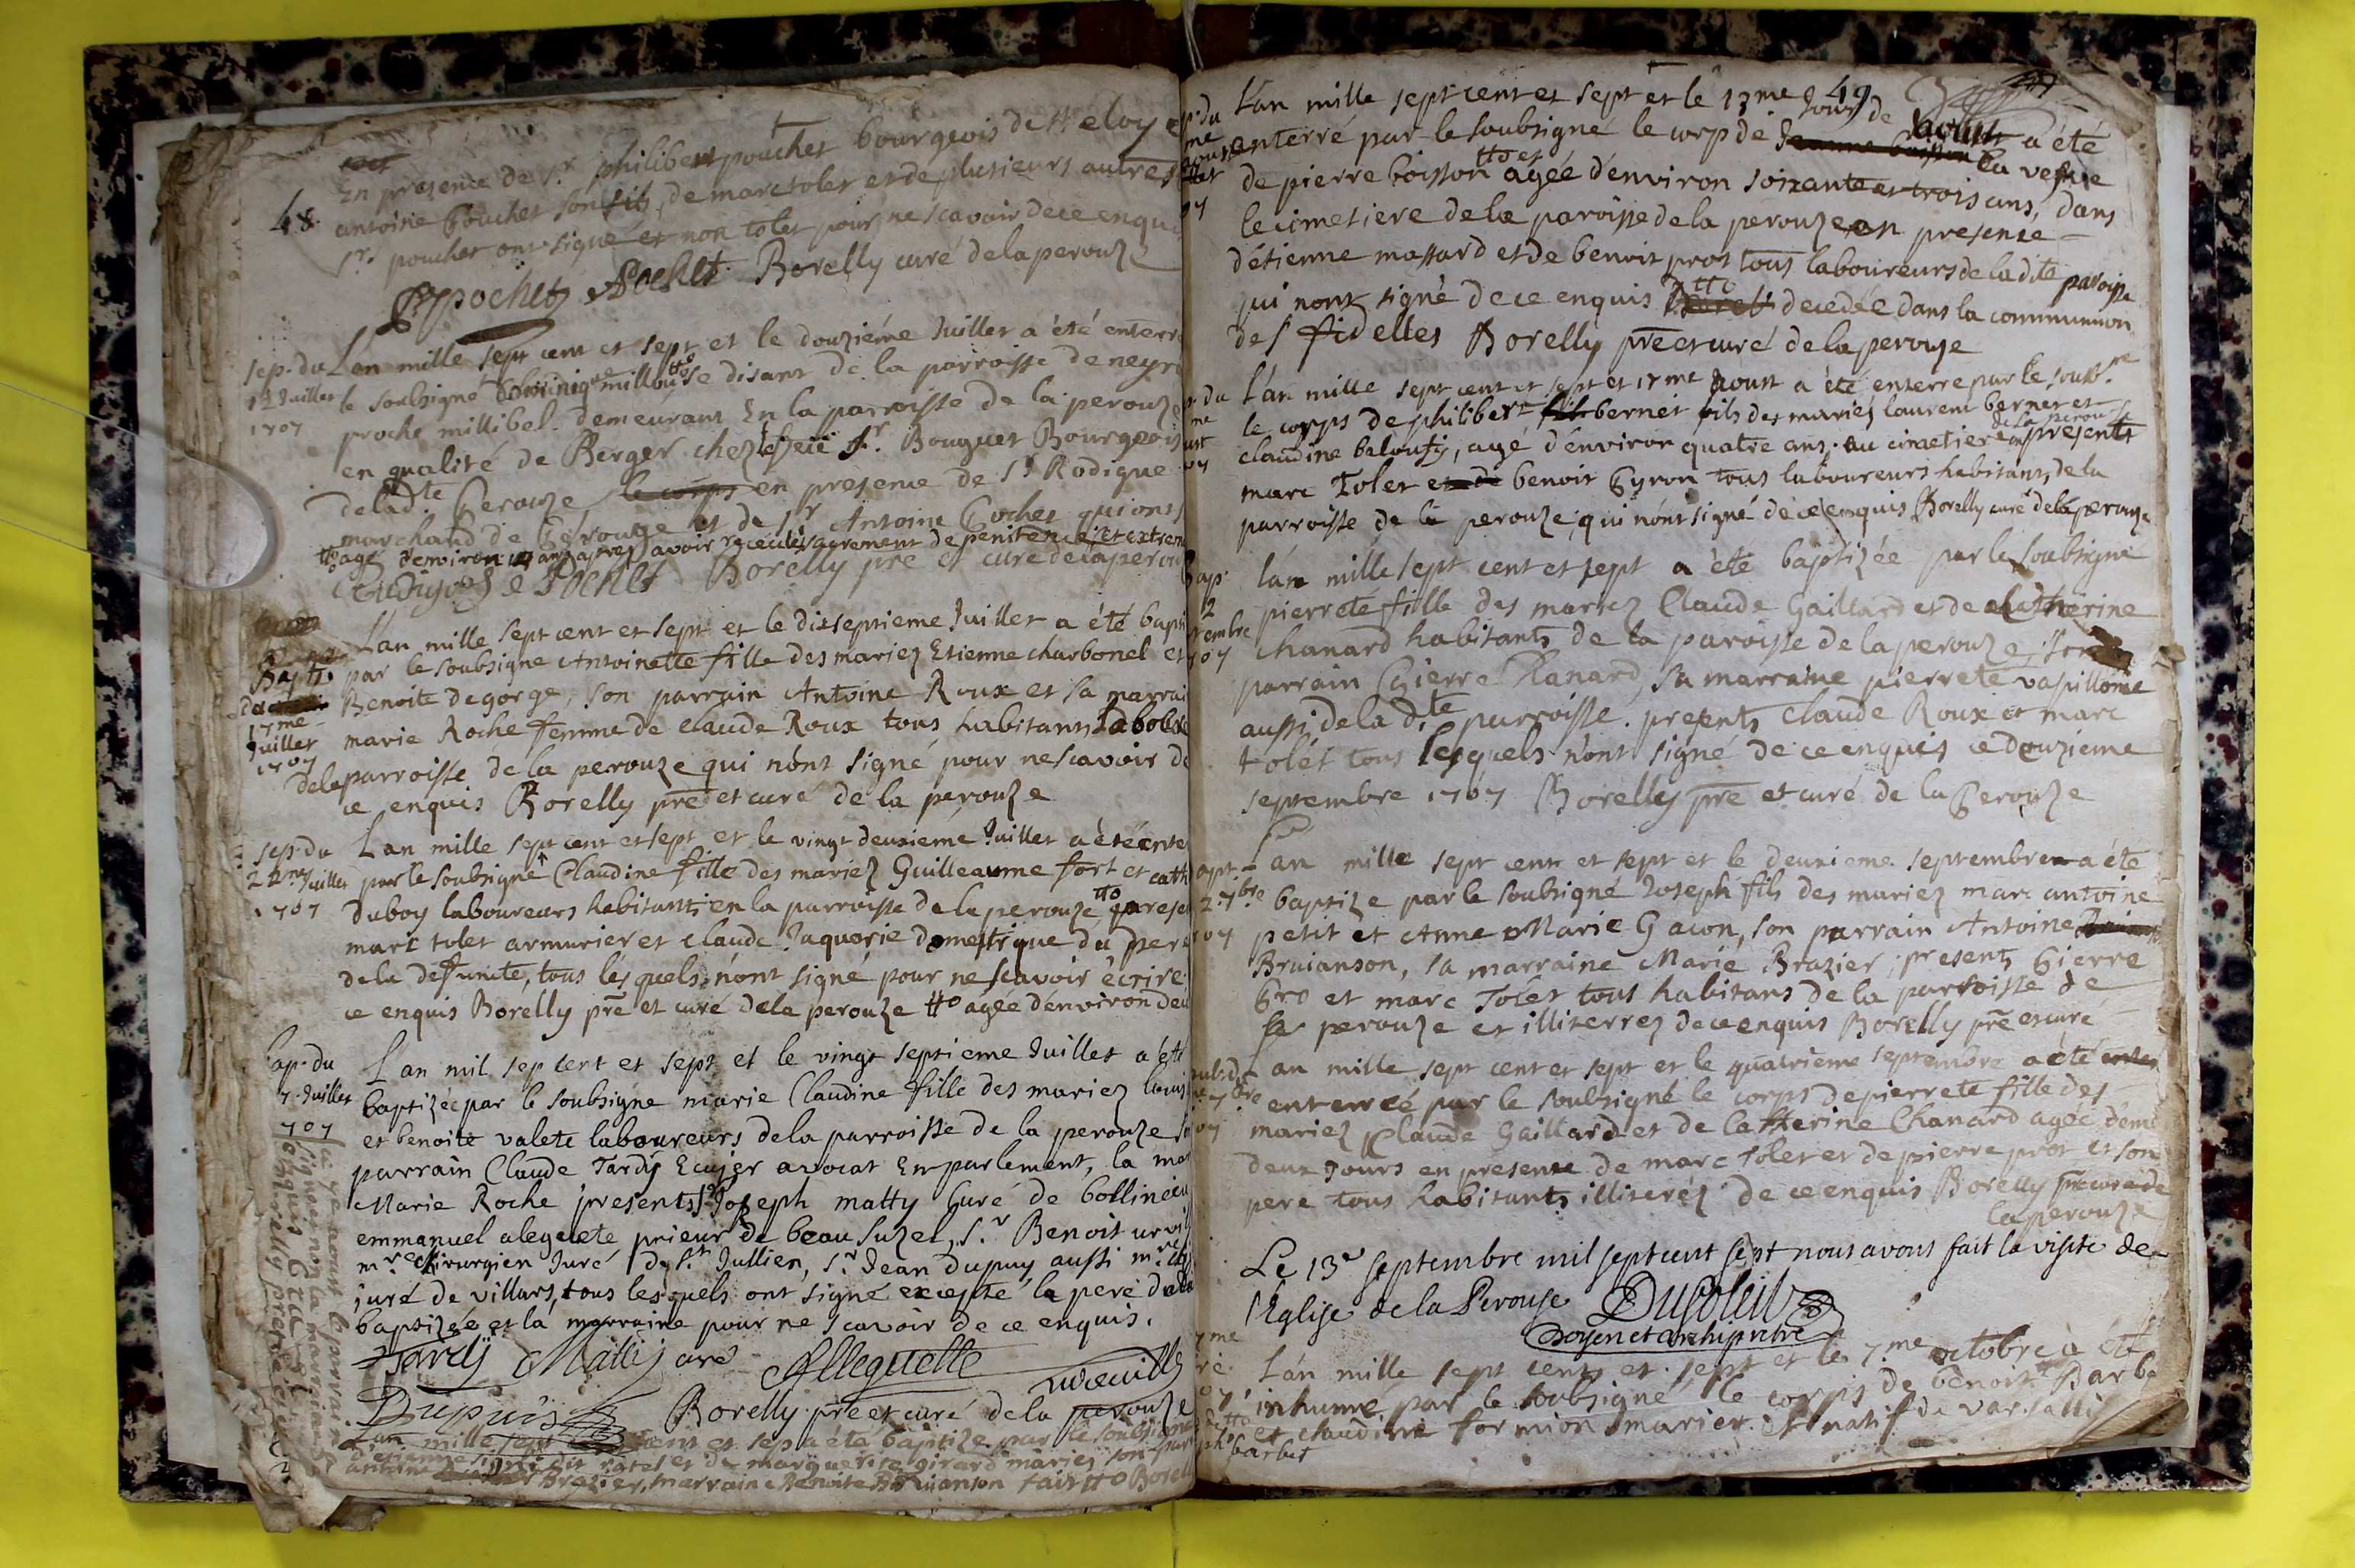 48
En presence de sr philibert pouchet bourgeois de st eloy
antoine pouchet son fils, de marc tolet et de plusieurs autres
srs pouchet ont signé et non tolet pour ne scavoir de ce enqu
Ppochet APochet Borelly curé de la perouze
sep. du
12 Juillet
1707
Lan mille sept cent et sept et le douziéme Juillet a été enterr
le soubsigné tto se disant de la parroisse de neyr
proche millibel. demeurant En la parroisse de la perouze
en qualité de Berger chez Sr. Bouguet Bourgeois
de lad.te Perouze le corps en presence de Sr Rodigue
marchand de Perouze et de sr Antoine Pochet qui ont
tto agé d'environ ans apres avoir receu les sacrement de penitence et extrem
Pochet Borelly pre et curé de la perou
Bapt.
17me
Juillet
1707
Lan mille sept cent et sept et le disseptieme Juillet a été bapt
par le soubsigne Antoinette fille des mariez Etienne charbonel et
Benoite degorge, son parrain Antoine Roux et sa marrai
marie Roche femme de claude Roux tous habitans Labou
de la parroisse de la perouze qui n'ont signé pour ne scavoir de
ce enquis Borelly pre et curé de la perouze
sep. du
22me Juillet
1707
Lan mille sept cent et sept et le vingt deuxieme Juillet a été ente
par le soubsigné Claudine fille des mariez Guilleaume fort et cath
duboy laboureurs habitants en la parroisse de la perouze tto prese
marc tolet armurier et claude Jaquerie domestique du pere
de la defuncte, tous lesquels n'ont signé pour ne scavoir écrire
ce enquis Borelly pre et curé de la perouze tto agée d'environ deu
bap. du
7. Juillet
707
Lan mil sep cent et sept et le vingt septieme Juillet a été
baptizée par le soubsigne marie Claudine fille des mariez louis
et benoite valete laboureurs de la parroisse de la perouze
parrain Claude Tardy Ecuyer avocat En parlement, la mar
Marie Roche presents Sr Joseph matty Curé de
emmanuel aleguete prieur de beau Suzet, Sr. Benoit
mr. chirurgien Juré de st. Jullien, sr. Jean dupuy aussi mr. chi
juré de villars, tous lesquels ont signé excepté le pere de la
baptizée et la marraine pour ne scavoir de ce enquis.
Tardÿ Matty curé Alleguette
Dupuis Borelly pre et curé de la perouze
Lan mille sept cent et sep a été baptize par le soubsigne
et de marguerite girard mariez son par
antoine Brazier, marraine Benoite Bruianson fait tto Borell
49
L'an mille sept cent et sept et le 13me Jour de Aoust a été
enterré par le soubsigné le corp de la vefve
de pierre boisson tto et agée d'environ soixante et trois ans, dans
le cimetiere de la paroisse de la perouze en presense
d'étienne massard et de benoit prot tous laboureurs de la dite paroisse
qui n'ont signé de ce enquis tto decedée dans la communion
des fidelles Borelly pre et curé de la perouze
L'an mille sept cent et sept et 17me Aoust a été enterre par le soub.ne
le corps de philibert bernet fils des mariez laurent bernet et
claudine baloufy, agé d'environ quatre ans. au cimetiere de la perouse en presents
marc Tolet et de benoit Pyron tous laboureurs habitans de la
parroisse de la perouze, qui n'ont signé de ce enquis Borelly curé de la perouze
bap.
2
tembre
707
l'an mille sept cent et sept a été baptizée par le soubsigné
pierrete fille des mariez Claude Gaillard et de Catherine
chanard habitants de la paroisse de la perouze, son
parrain Pierre Chanard, sa marraine pierrete vapillome
aussi de la d.te parroisse. presents claude Roux et marc
tolét tous lesquels n'ont signé de ce enquis ce douzieme
septembre 1707 Borelly pre et curé de la Perouze
apt.
2 7bre
707
Lan mille sept cent et sept et le deuxieme septembre a été
baptize par le soubsigné Joseph fils des mariez marc antoine
petit et Anne Marie Gacon, son parrain Antoine
Bruianson, sa marraine Marie Brazier, presents Pierre
Pro et marc Tolet tous habitans de la parroisse de
la perouze et illiterrez de ce enquis Borelly pre et curé
Lan mille sept cent et sept et le quatrieme septembre a été
enterré par le soubsigné le corps de pierrete fille des
mariez Claude Gaillard et de Catherine Chanard agée denv
deux Jours en presense de marc tolet et de pierre prot et son
pere tous habitants illiteréz de ce enquis Borelly pre curé de
la perouze
Le 13e septembre mil sept cent sept nous avons fait la visite de
l'Eglise de la Perouse Dusoleil
Doyen et archipretre
L'an mille sept cent et sept et le 7.me octobre a été
inhumé par le soubsigné le corps de benoit Barbe
et claudine formion mariez. natif de
barbet